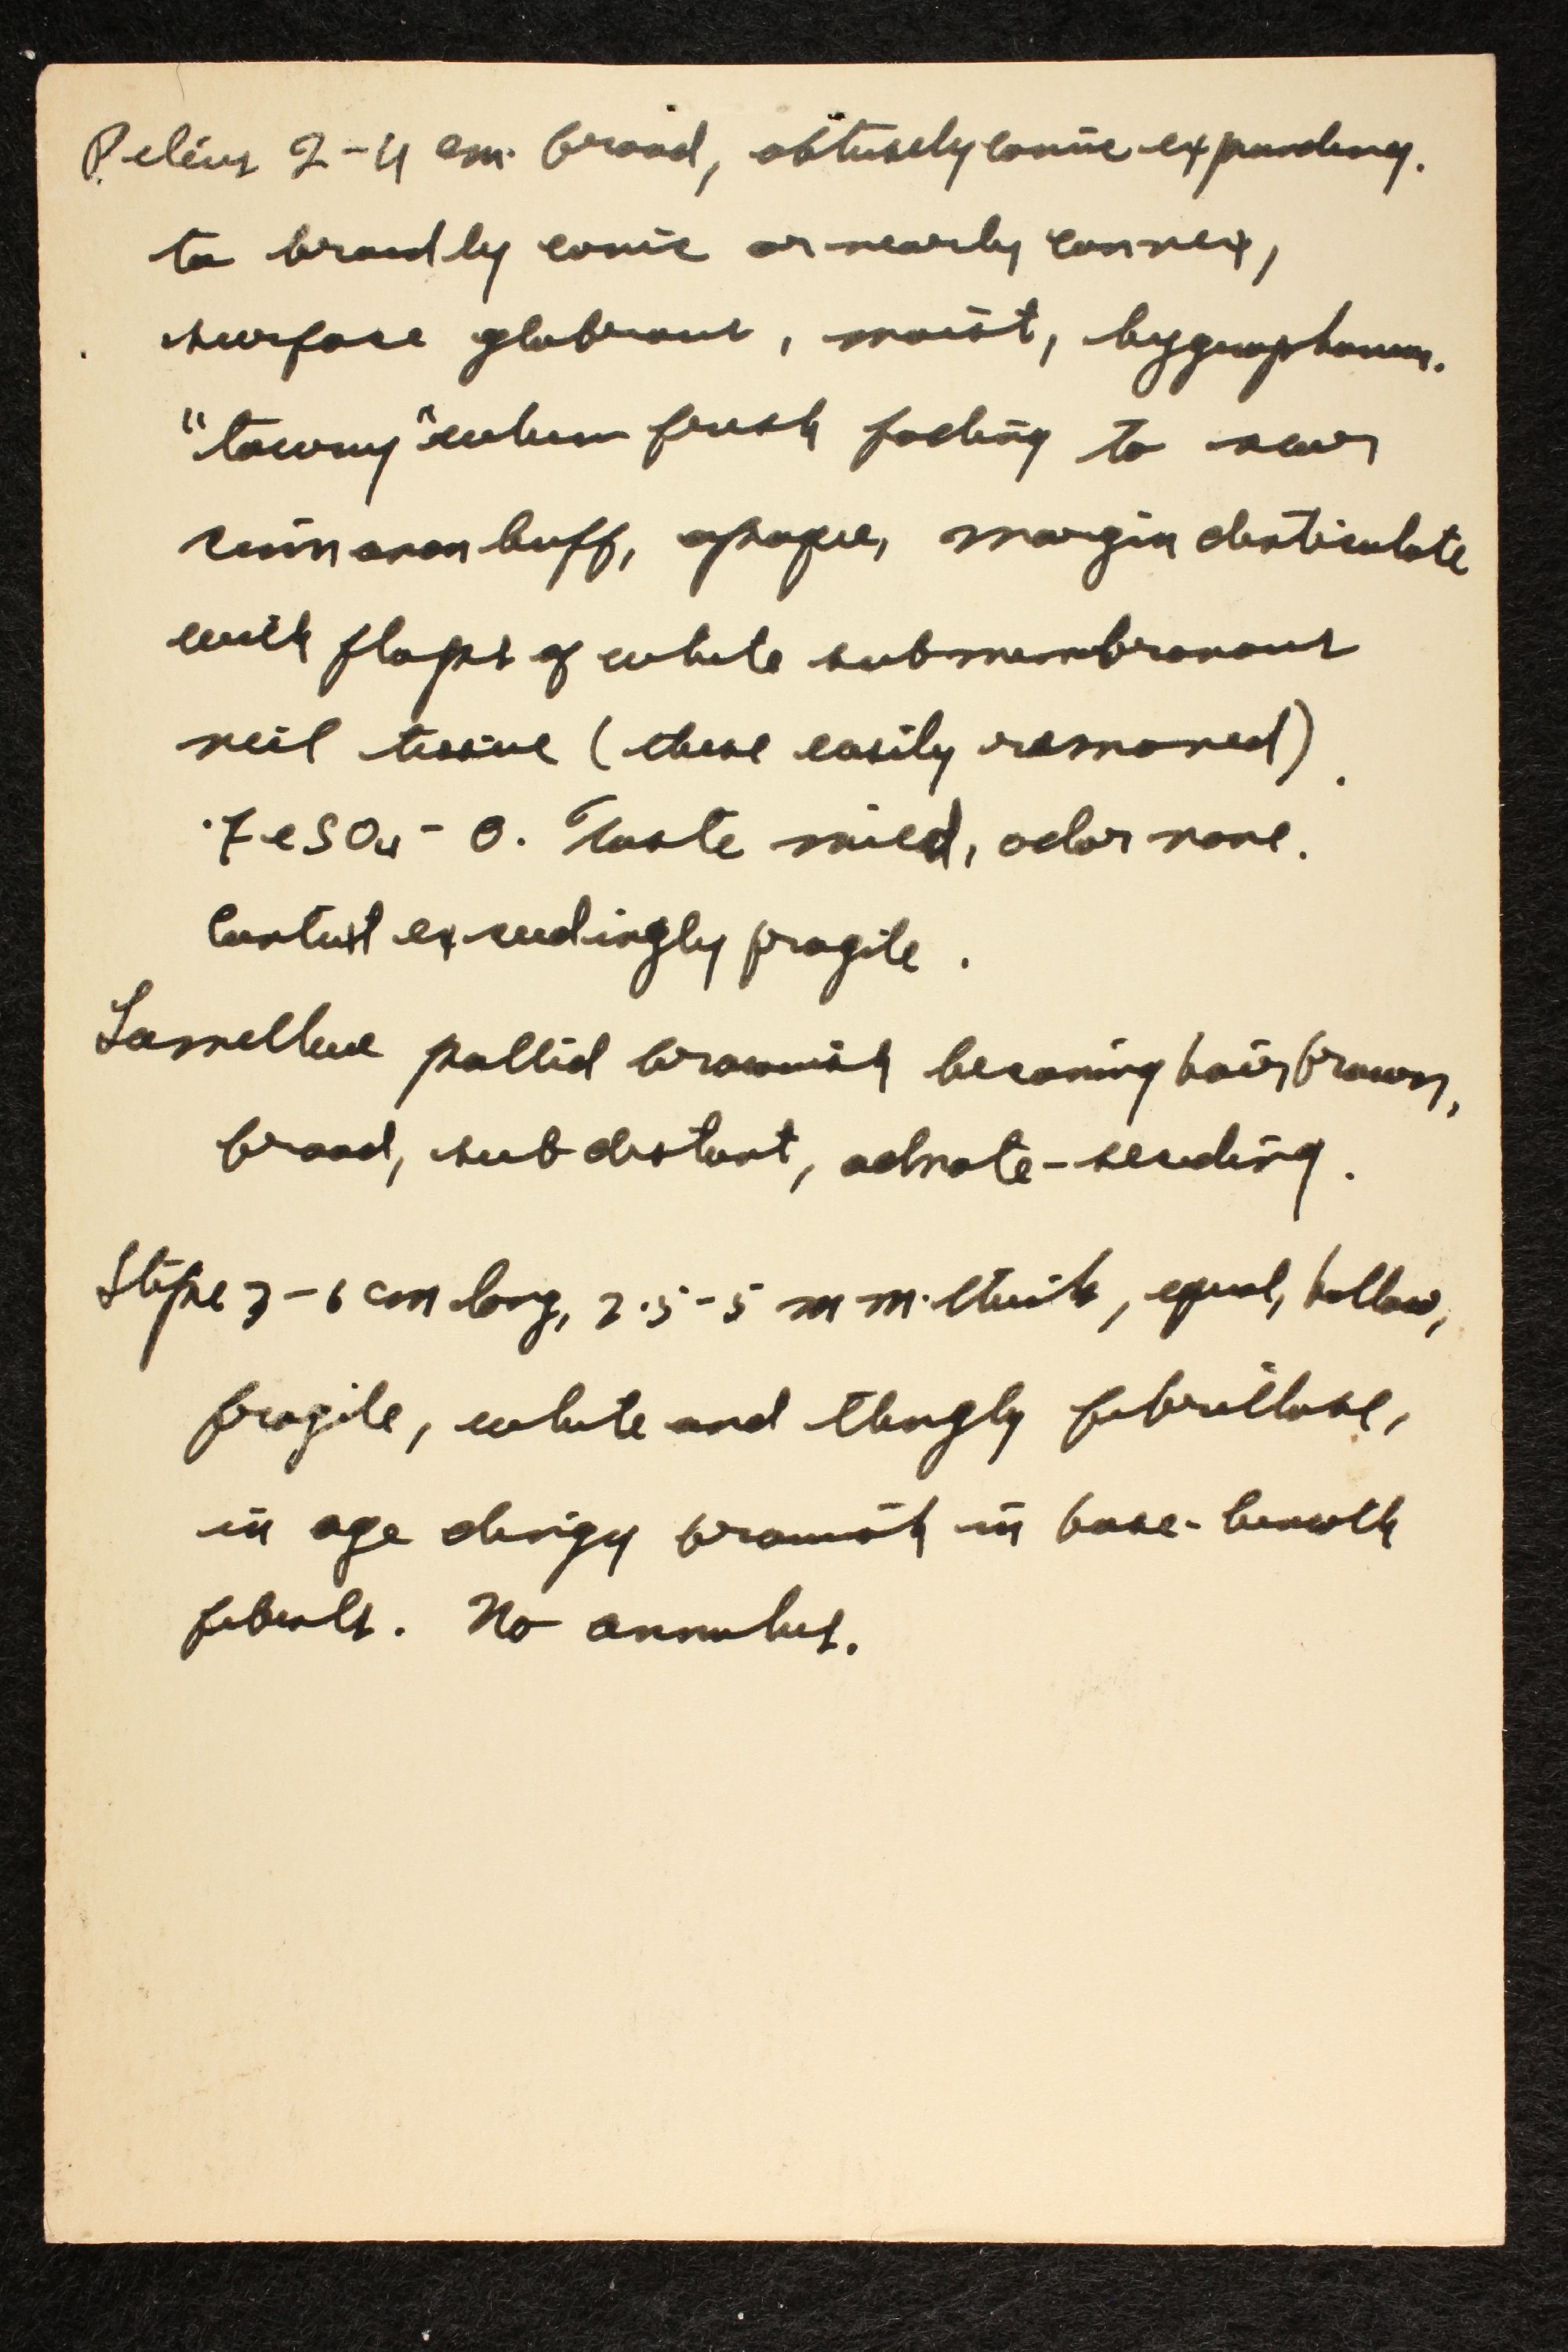 Pileus 2-4 cm. broad, obtusely conic expanding.
to broadly conic or nearly convex,
surface glabrous, moist, hygrophanous.
"tawny" when fresh fading to near
cinnamon buff, opaque, margin denticulate
with flaps of white submembranous
veil tissue (these easily removed).
FeSO4 - 0. Taste mild, odor none.
Context exceedingly fragile.
Lamellae pallid brownish becoming hair brown,
broad, subdistant, adnate-seceding.
Stipe 3-6 cm long, 2.5-5 mm. thick, equal, hollow,
fragile, white and thinly fibrillose,
in age dingy brownish in base - beneath
fibrils. No annulus.